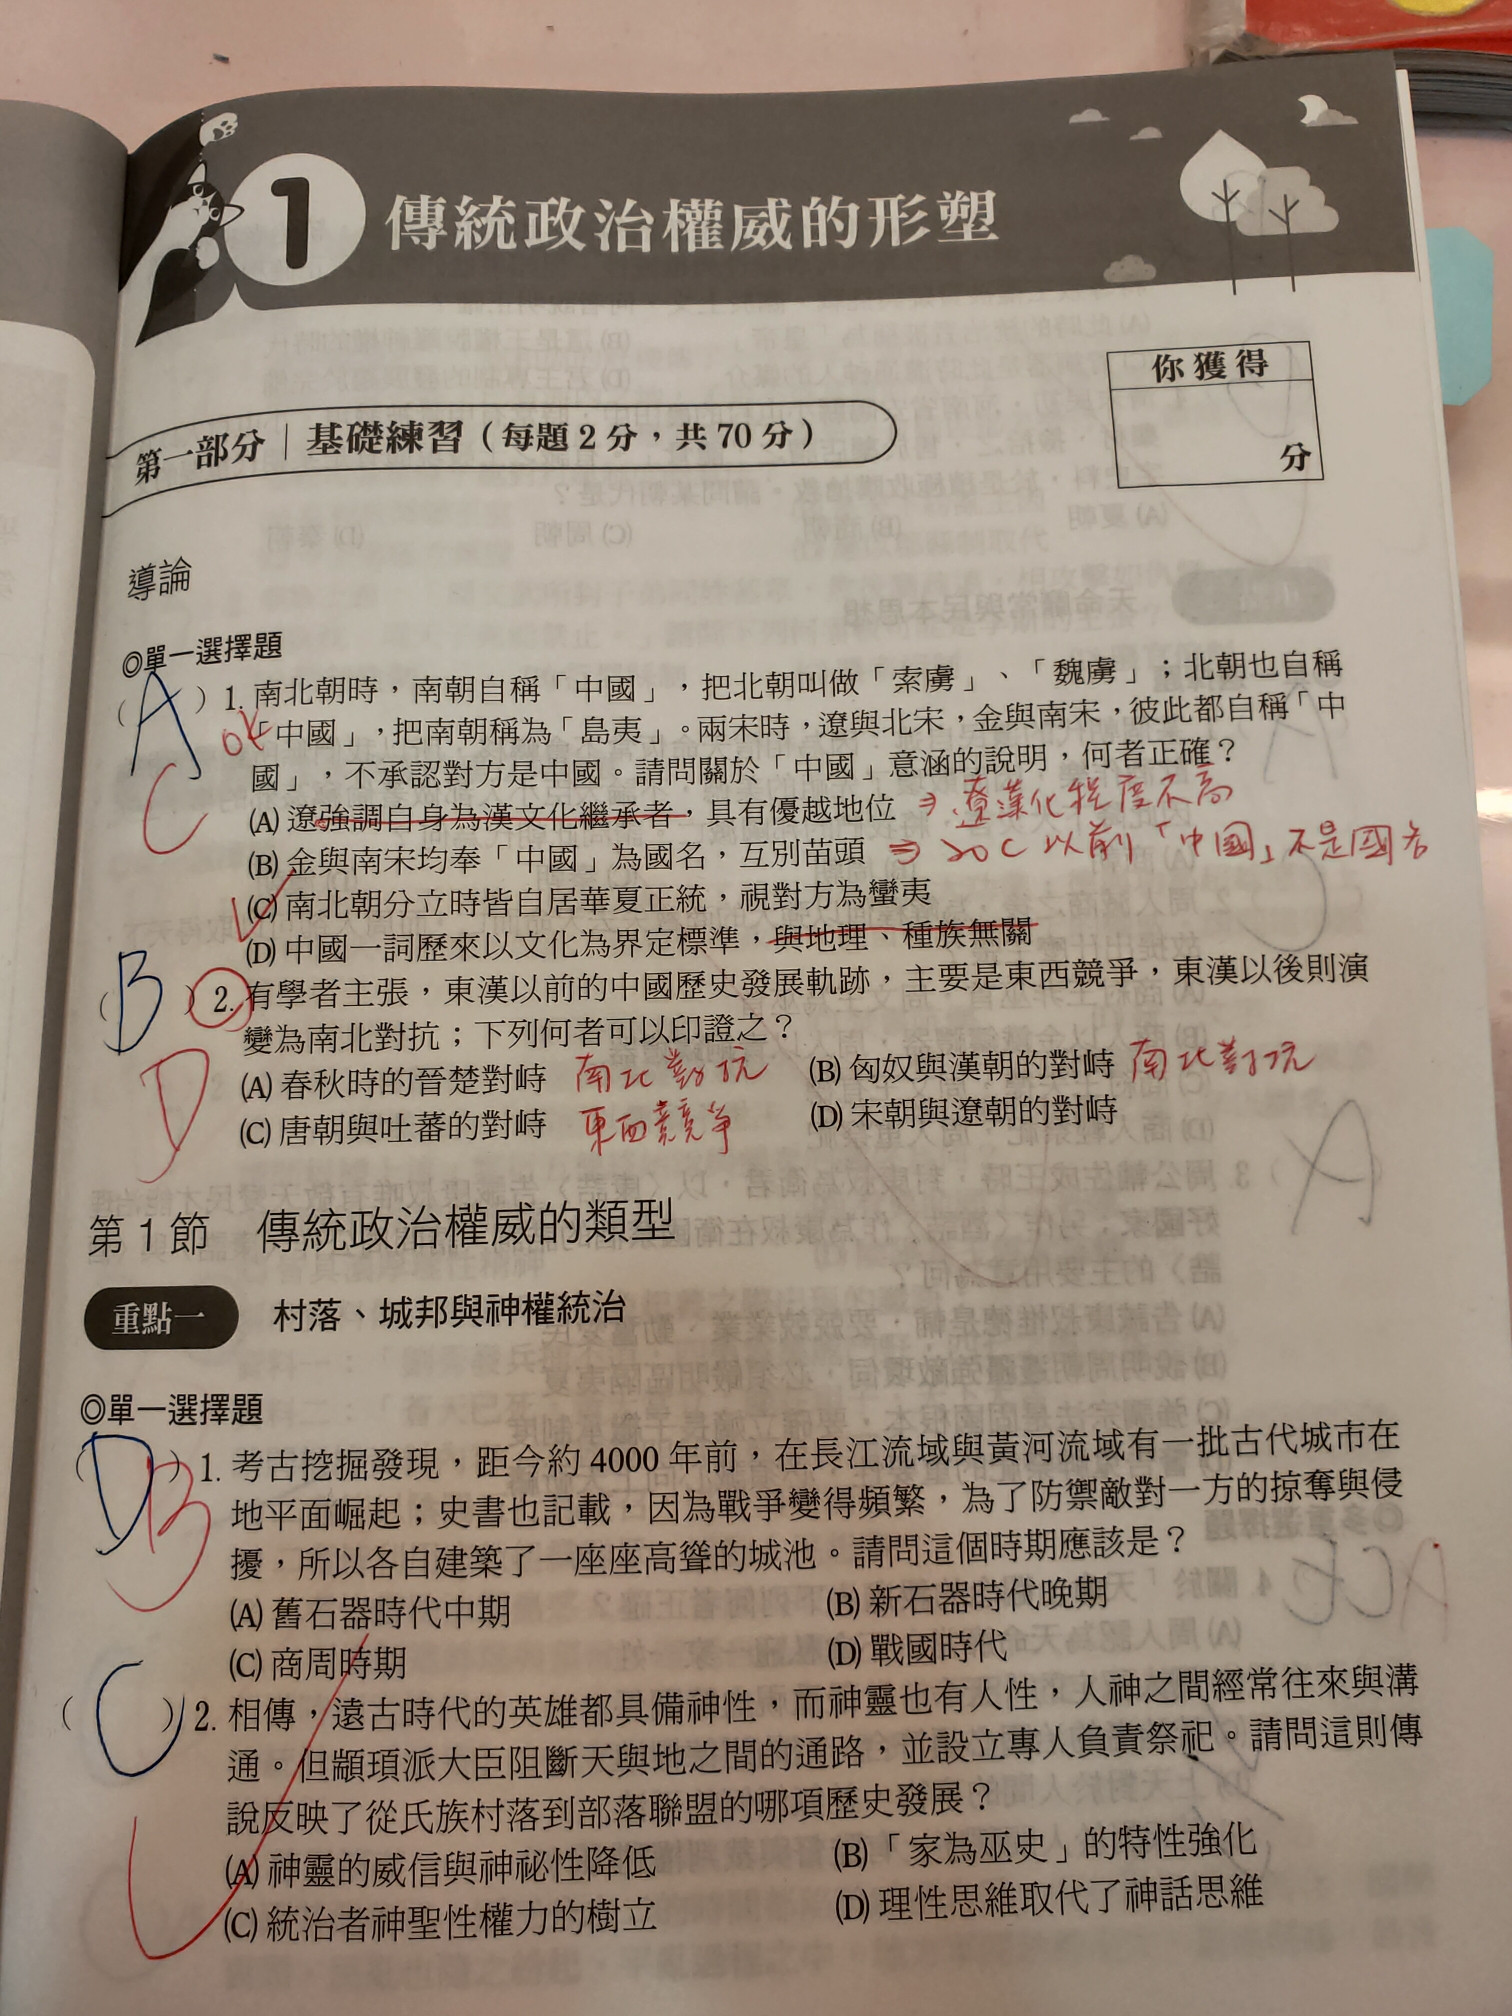 1
傳統政治權威的形塑
你獲得
分
第一部分｜基礎練習（每題2分，共70分）
導論
◎單一選擇題
（A）1. 南北朝時，南朝自稱「中國」，把北朝叫做「索虜」、「魏虜」；北朝也自稱
OK「中國」，把南朝稱為「島夷」。兩宋時，遼與北宋，金與南宋，彼此都自稱「中
C 國」，不承認對方是中國。請問關於「中國」意涵的說明，何者正確？
(A) 遼強調自身為漢文化繼承者，具有優越地位 ⇒ 遼漢化程度不高
(B) 金與南宋均奉「中國」為國名，互別苗頭 ⇒ 20C以前「中國」不是國名
(C) 南北朝分立時皆自居華夏正統，視對方為蠻夷
(D) 中國一詞歷來以文化為界定標準，與地理、種族無關
（B）2. 有學者主張，東漢以前的中國歷史發展軌跡，主要是東西競爭，東漢以後則演
變為南北對抗；下列何者可以印證之？
D (A) 春秋時的晉楚對峙 南北對抗 (B) 匈奴與漢朝的對峙 南北對抗
(C) 唐朝與吐蕃的對峙 東西競爭 (D) 宋朝與遼朝的對峙
第1節 傳統政治權威的類型
重點一 村落、城邦與神權統治
◎單一選擇題
（D）B 1. 考古挖掘發現，距今約4000年前，在長江流域與黃河流域有一批古代城市在
地平面崛起；史書也記載，因為戰爭變得頻繁，為了防禦敵對一方的掠奪與侵
擾，所以各自建築了一座座高聳的城池。請問這個時期應該是？
(A) 舊石器時代中期 (B) 新石器時代晚期
(C) 商周時期 (D) 戰國時代
（C）2. 相傳，遠古時代的英雄都具備神性，而神靈也有人性，人神之間經常往來與溝
通。但顓頊派大臣阻斷天與地之間的通路，並設立專人負責祭祀。請問這則傳
說反映了從氏族村落到部落聯盟的哪項歷史發展？
(A) 神靈的威信與神祕性降低 (B)「家為巫史」的特性強化
(C) 統治者神聖性權力的樹立 (D) 理性思維取代了神話思維